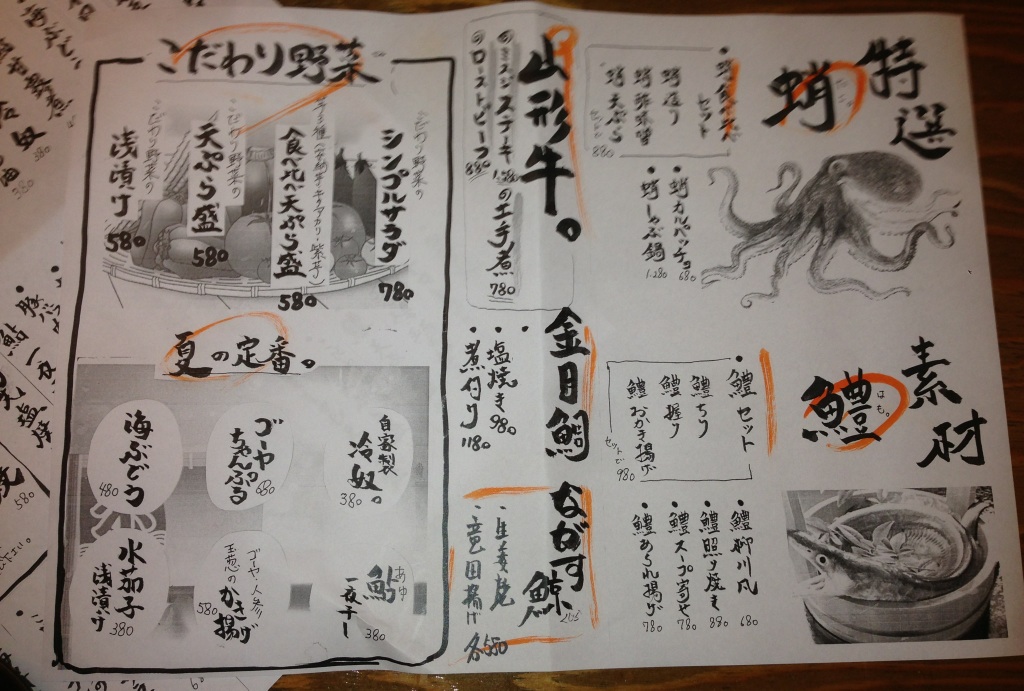 特選
素材
蛸
セット
蛸造り
蛸天ぷら
880
・蛸カルパッチョ
680
・蛸しゃぶ鍋
1.280
鱧
はも。
・鱧セット
鱧ちり
鱧握り
鱧おかき揚げ
セットで
980
・鱧柳川風
680
・鱧照り焼き
890
・鱧スープ寄せ
780
・鱧あられ揚げ
780
山形牛。
ミスジステーキ
ローストビーフ
880
の工手煮
780
金目鯛
・塩焼き
980
・煮付り
1180
ながす鯨
・生姜焼
・竜田揚げ
各550
こだわり野菜
こだわり野菜の
シンプルサラダ
780
食べ比べ天ぷら盛
580
こだわり野菜の
天ぷら盛
580
こだわり野菜の
浅漬け
580
夏の定番。
自家製
冷奴。
380
ゴーヤ
ちゃんぷる
680
海ぶどう
480
鮎
あゆ
一夜干し
380
ゴーヤ・人参
玉葱のかき揚げ
580
水茄子
浅漬け
380